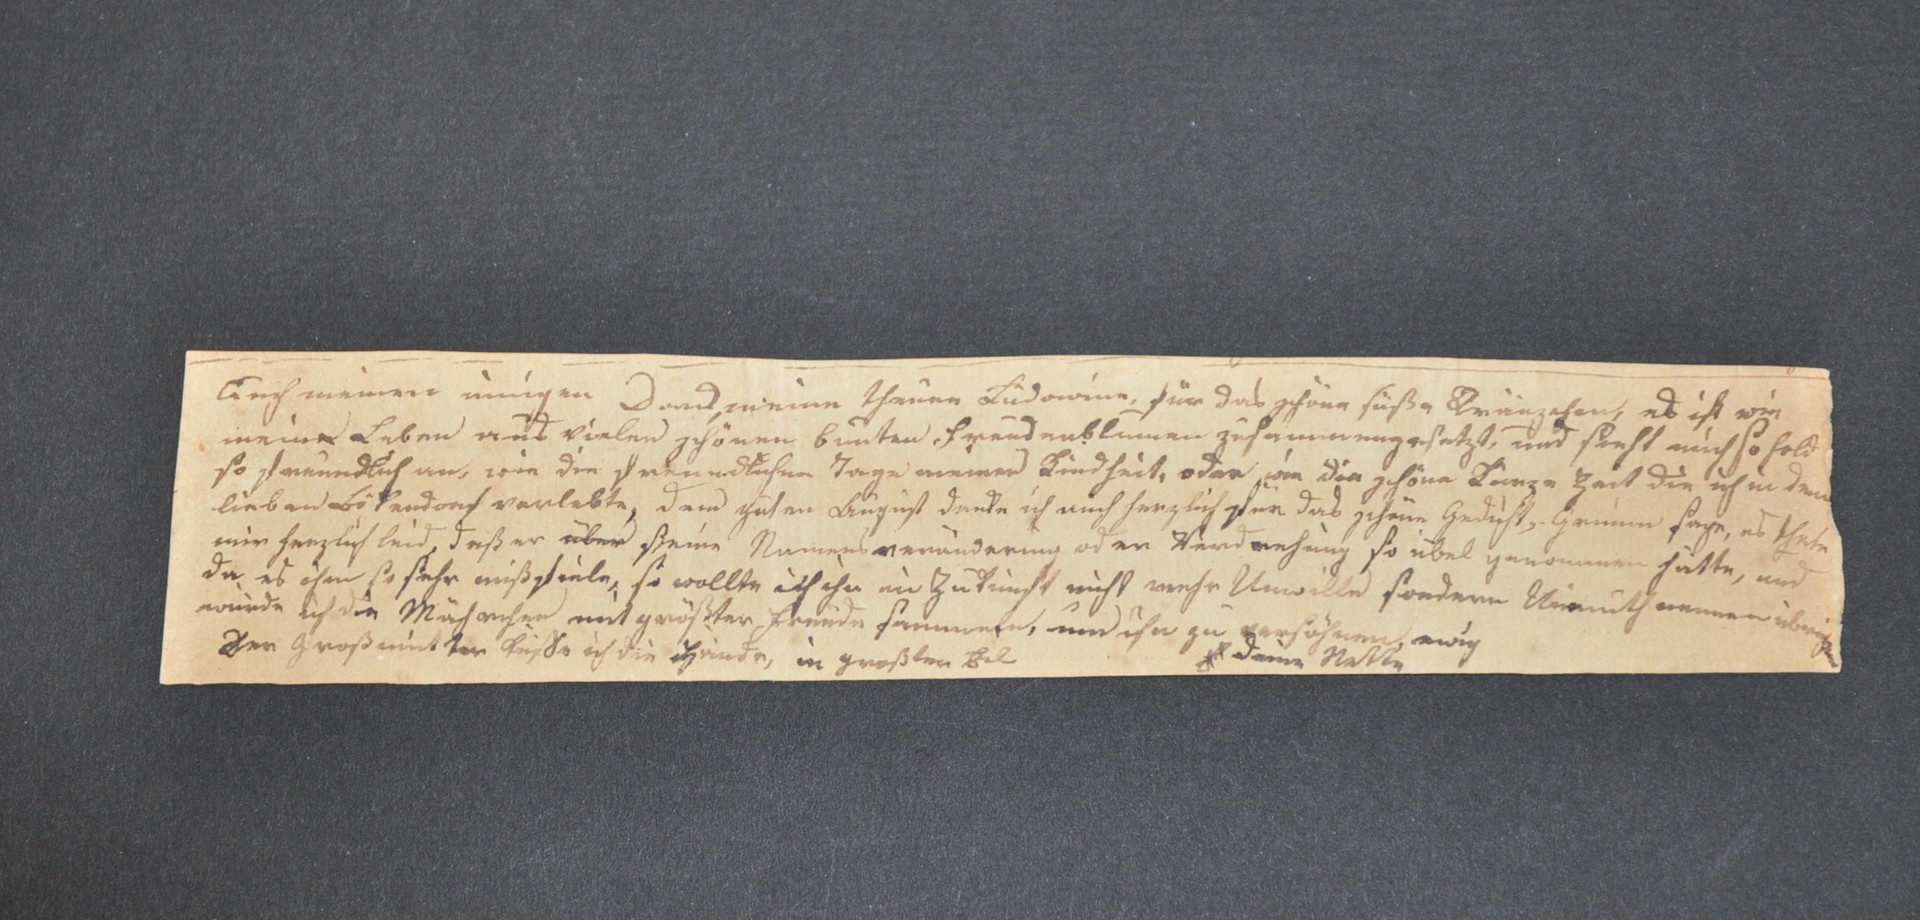 Auch meinen innigen Dank, meine theure Ludowine, für das schöne süße Kränzchen, es ist wie
mein Leben aus vielen schönen bunten Freudenblumen zusammengesetzt, und sieht mich so hold
so freundlich an, wie die freundlichen Tage meiner Kindheit, oder wie die schöne kurze Zeit die ich in dem
lieben Bökendorf verlebte, dem guten August danke ich auch herzlich für das schöne Gedicht, Grimm sage, es thäte
mir herzlich leid, daß er über seine Namensveränderung oder Verdrehung so übel genommen hätte, und
da es ihm so sehr mißfiele, so wollte ich ihn in Zukunft nicht mehr Unwille sondern Unmuth nennen übrigens
würde ich die Mährchen mit größter Freude sammeln, um ihn zu versöhnen, ewig
Der Großmutter küsse ich die Hände, in großter Eil deine Nette